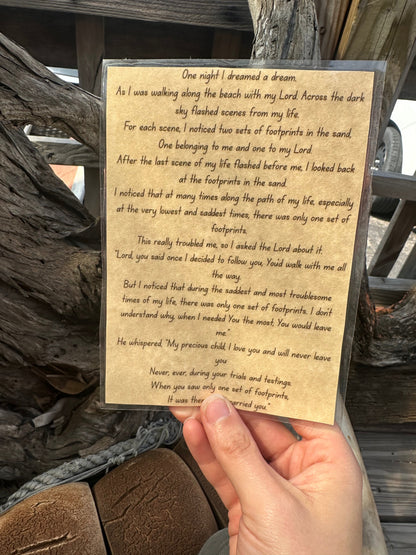 One night I dreamed a dream.
As I was walking along the beach with my Lord. Across the dark
sky flashed scenes from my life.
For each scene, I noticed two sets of footprints in the sand,
One belonging to me and one to my Lord.
After the last scene of my life flashed before me, I looked back
at the footprints in the sand.
I noticed that at many times along the path of my life, especially
at the very lowest and saddest times, there was only one set of
footprints.
This really troubled me, so I asked the Lord about it.
"Lord, you said once I decided to follow you, You'd walk with me all
the way.
But I noticed that during the saddest and most troublesome
times of my life, there was only one set of footprints. I don't
understand why, when I needed You the most, You would leave
me."
He whispered, "My precious child, I love you and will never leave
you
Never, ever, during your trials and testings.
When you saw only one set of footprints,
It was carried you."